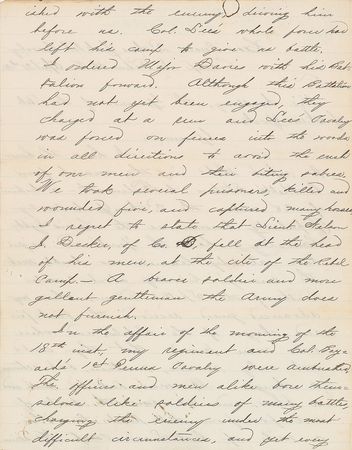 with the enemy, driving him
before us. Col. Lees whole force had
left his camp to give us battle.
I ordered Major Davies with his Bat-
talion forward. Although this Battalion
had not yet been engaged, they
charged at a run and Lees Cavalry
was forced on fences into the woods
in all directions to avoid the
of our men and their biting sabres.
We took several prisoners, killed and
wounded five, and captured many horses
I regret to state that Lieut
I. Decker, of Co D. fell at the head
of his men, at the of the Rebel
Camp. — A braver soldier and more
gallant gentleman the Army does
not furnish.
In the affair of the morning of the
18th inst, my regiment and Col. Bay-
ard's 1st Penna Cavalry were ambushed
The officers and men alike bore them-
selves like soldiers of many battles,
charging the enemy under the most
difficult circumstances, and yet every